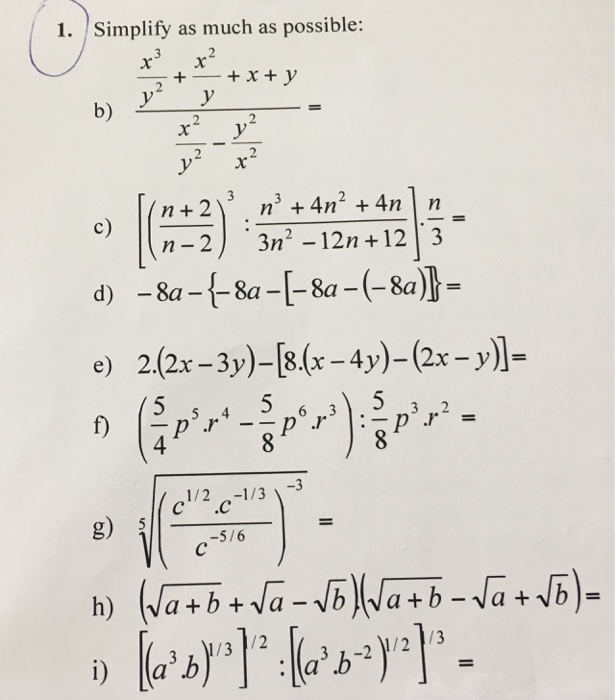 1. Simplify as much as possible:
b) \frac{\frac{x^3}{y^2} + \frac{x^2}{y} + x + y}{\frac{x^2}{y^2} - \frac{y^2}{x^2}} =
c) \left[\left(\frac{n+2}{n-2}\right)^3 : \frac{n^3 + 4n^2 + 4n}{3n^2 - 12n + 12}\right] . \frac{n}{3} =
d) -8a-{-8a-[-8a-(-8a)]}=
e) 2.(2x-3y)-[8.(x-4y)-(2x-y)]=
f) \left(\frac{5}{4}p^5.r^4 - \frac{5}{8}p^6.r^3\right) : \frac{5}{8}p^3.r^2 =
g) \sqrt[5]{\left(\frac{c^{1/2}.c^{-1/3}}{c^{-5/6}}\right)^{-3}} =
h) (\sqrt{a+b} + \sqrt{a} - \sqrt{b})(\sqrt{a+b} - \sqrt{a} + \sqrt{b})=
i) [(a^3.b)^{1/3}]^{1/2} : [(a^3.b^{-2})^{1/2}]^{1/3} =